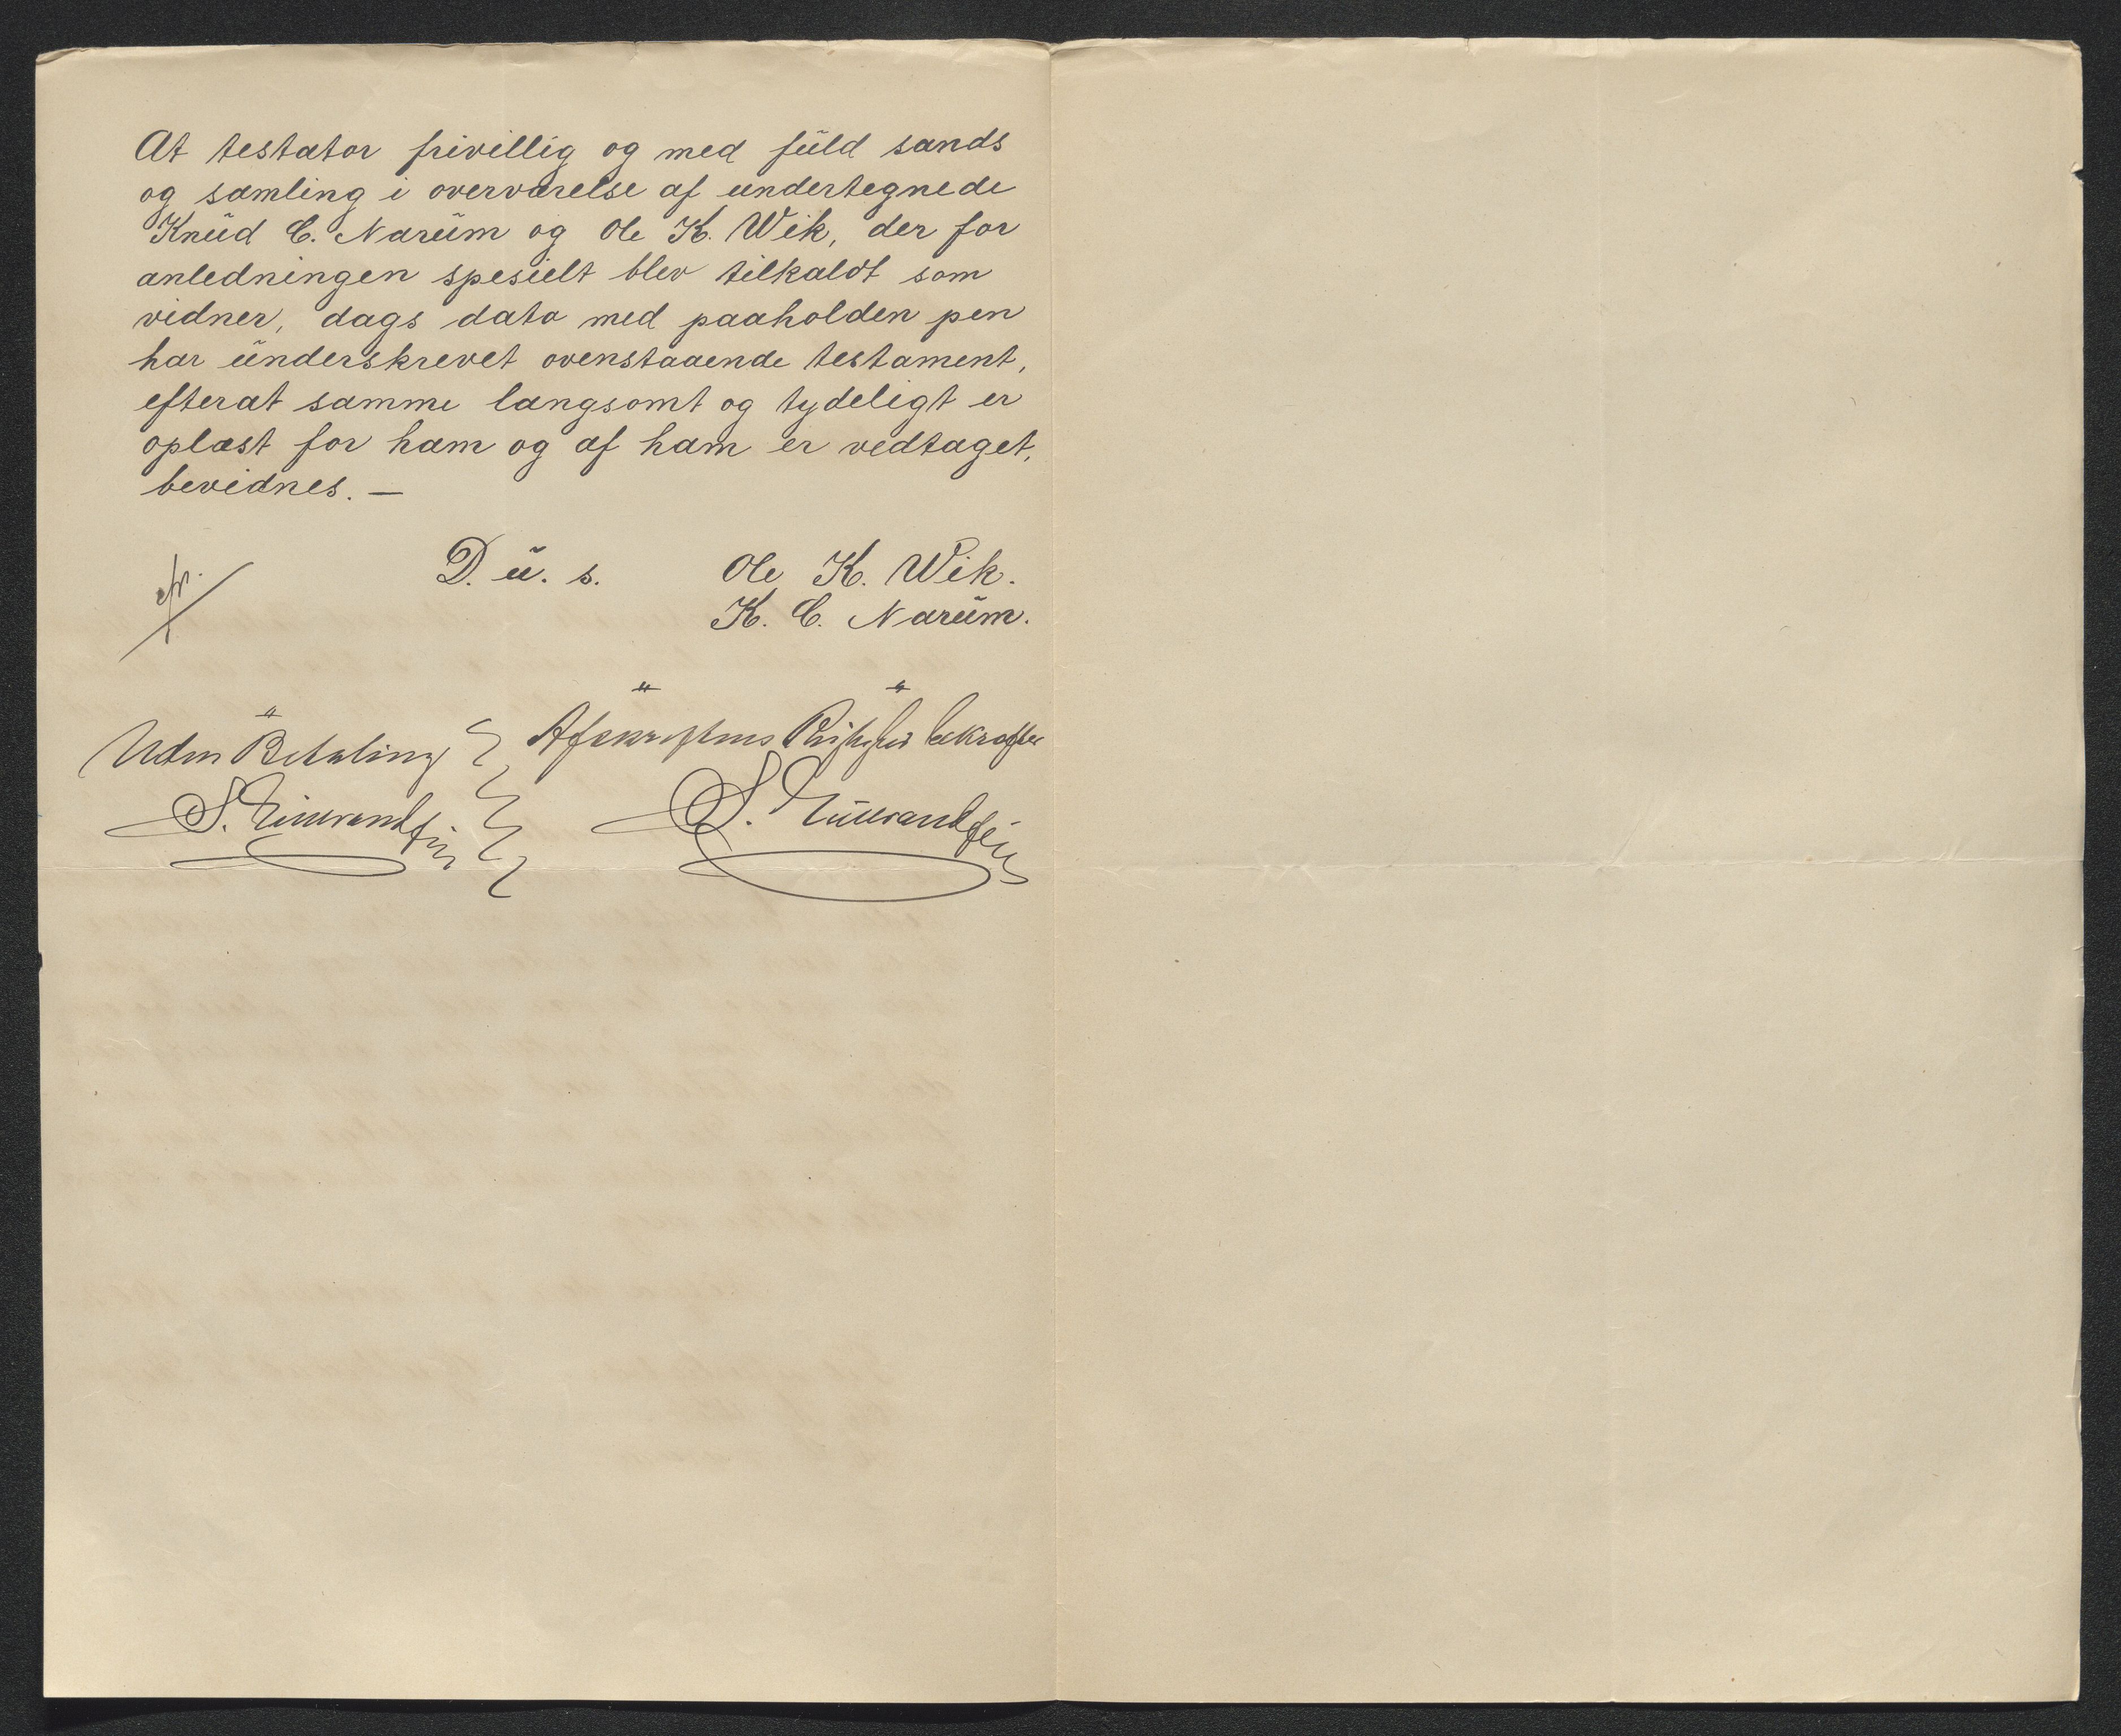 At testator frivillig og med fŭld sands
og samling i overværelse af undertegnede
Knŭd C. Narŭm og Ole K. Wik, der for
anledningen spesielt blev tilkaldt som
vidner, dags dato med paaholden pen
har ŭnderskrevet ovenstaaende testament,
efterat samme langsomt og tydeligt er
oplæst for ham og af ham er vedtaget,
bevidnes. —
D. ŭ. s. Ole K. Wik.
K. C. Narŭm.
Uden Betaling
Afskriftens Rigtighed bekræftes
S.
S.